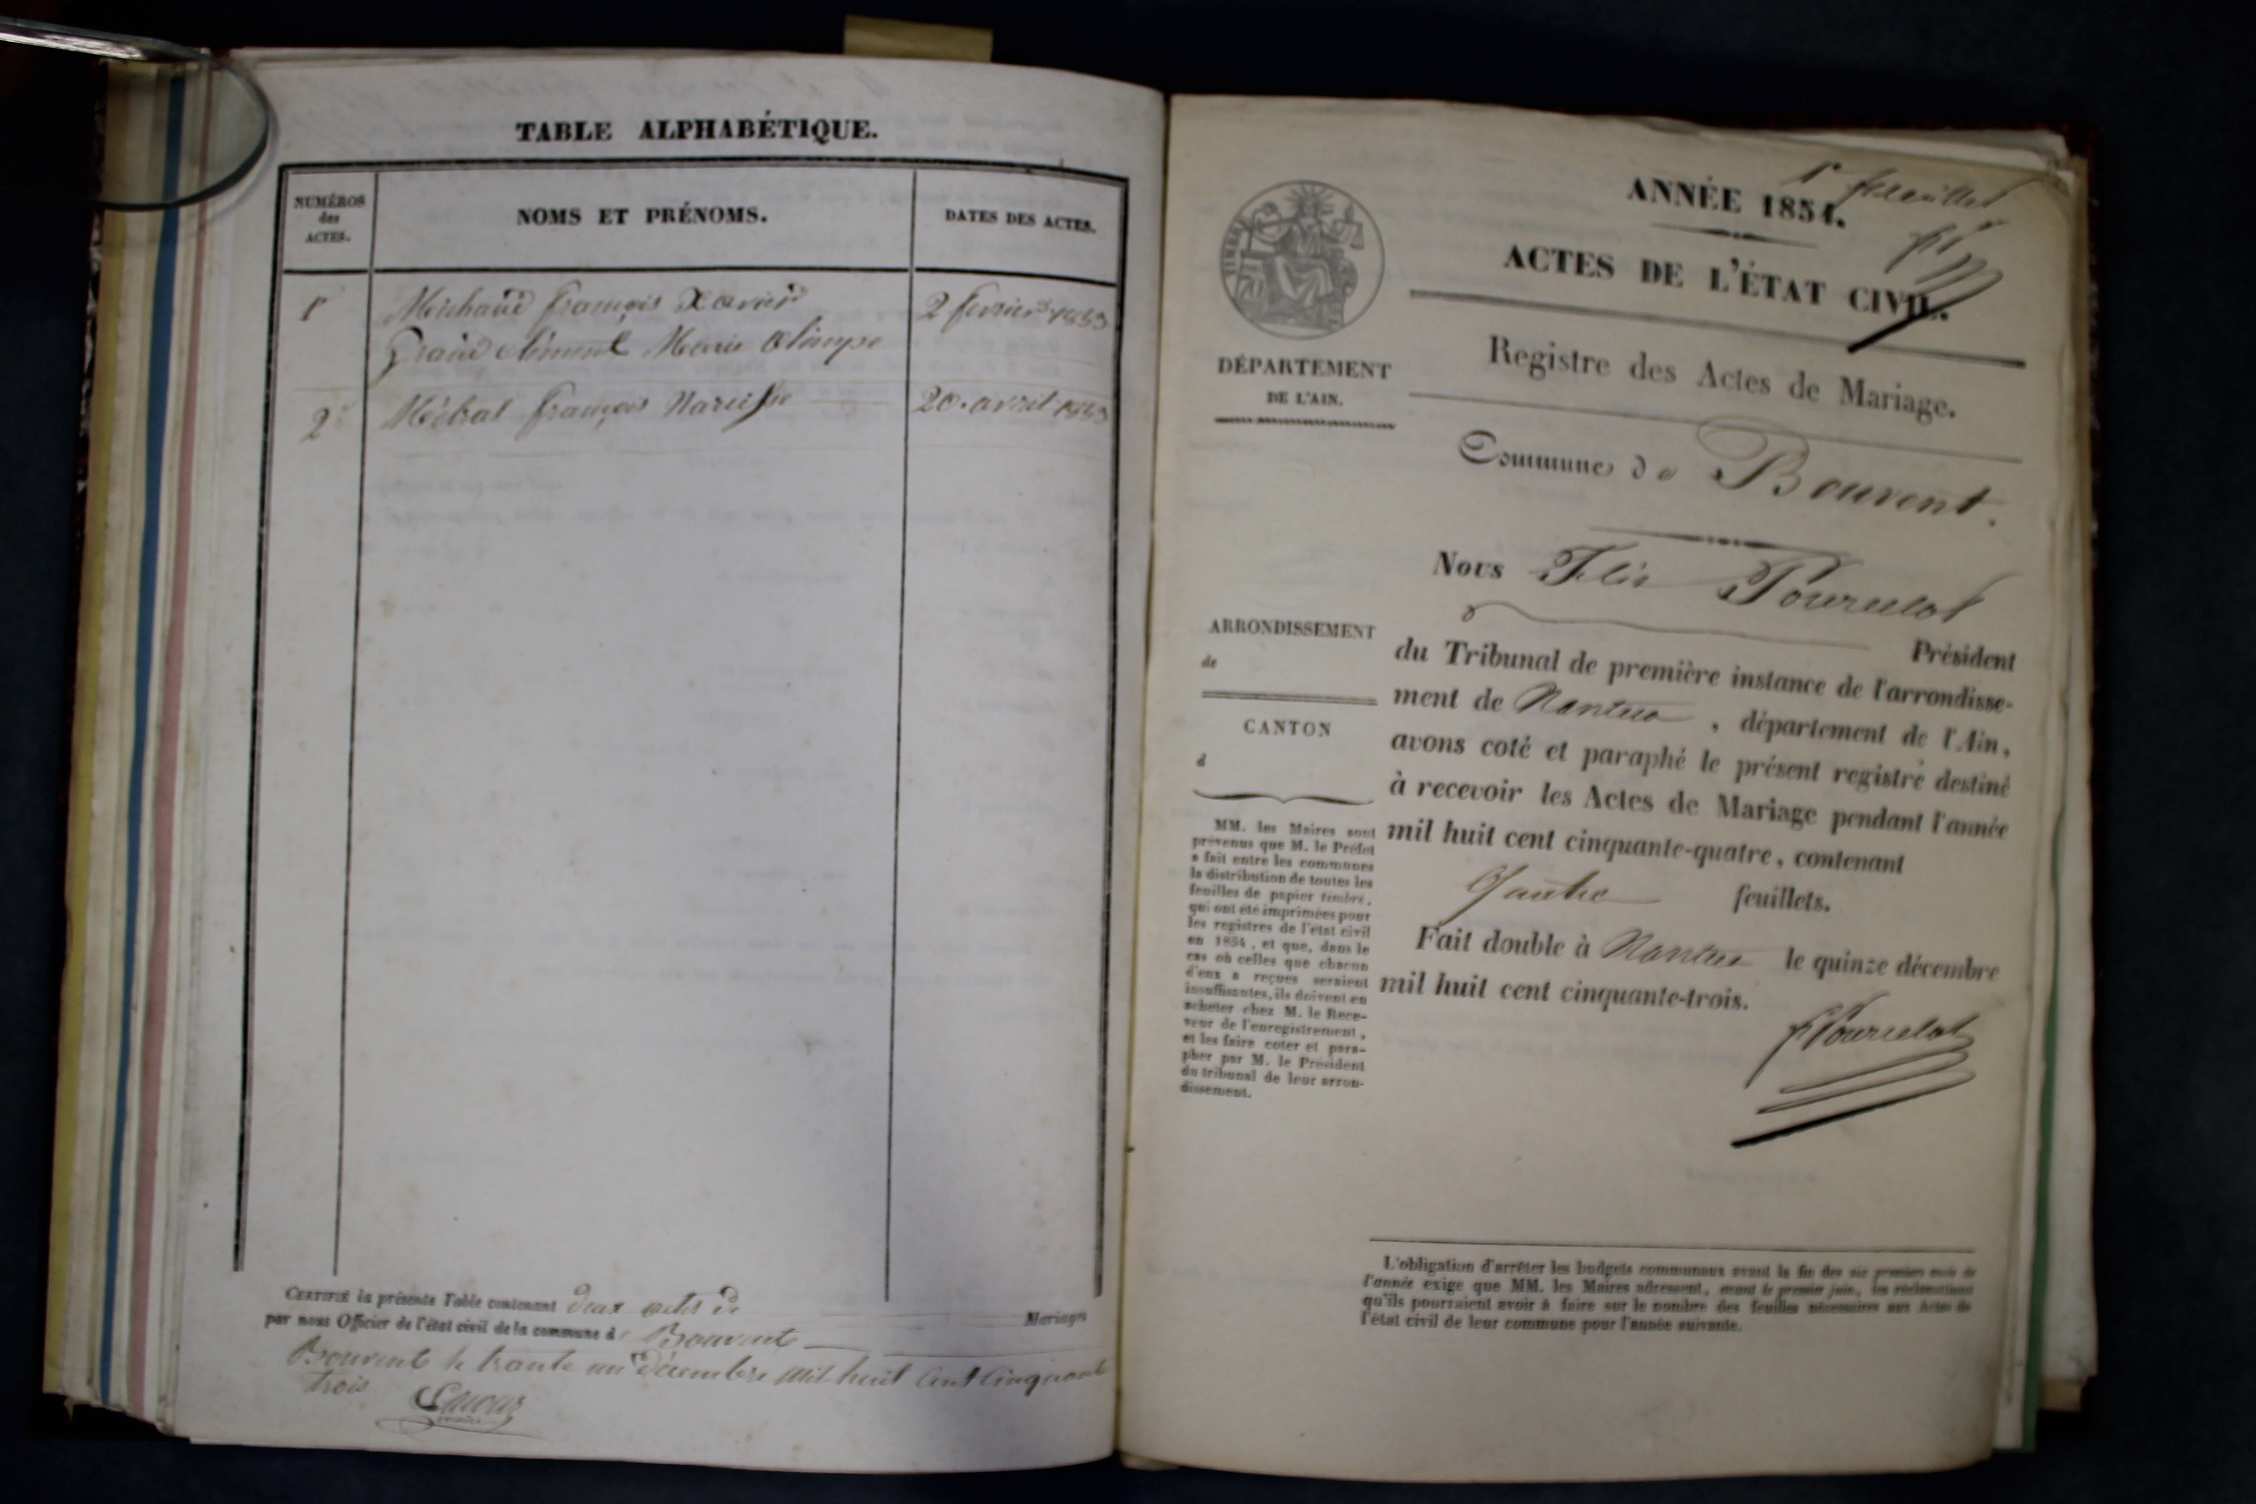 TABLE ALPHABÉTIQUE.
NUMÉROS
des
ACTES.
NOMS ET PRÉNOMS.
DATES DES ACTES.
1r
Michaud françois Xavier
2 fevrier 1853
Grand clément Marie Olimpe
2e
Métral françois Narcisse
20. avril 1853
CERTIFIÉ la présente Table contenant deux actes de Mariages
par nous Officier de l'état civil de la commune d Bouvent
Bouvent le trante un décembre mil huit cent cinquante
trois
1r feuillet
ANNÉE 1854.
ACTES DE L'ÉTAT CIVIL.
Registre des Actes de Mariage.
Commune de Bouvent.
TIMBRE
DÉPARTEMENT
DE L'AIN.
ARRONDISSEMENT
de
CANTON
d
MM. les Maires sont
prévenus que M. le Préfet
a fait entre les communes
la distribution de toutes les
feuilles de papier timbré,
qui ont été imprimées pour
les registres de l'état civil
en 1854, et que, dans le
cas où celles que chacun
d'eux a reçues seraient
insuffisantes, ils doivent en
acheter chez M. le Rece-
veur de l'enregistrement,
et les faire coter et para-
pher par M. le Président
du tribunal de leur arron-
dissement.
Nous Félix Tournelot
Président
du Tribunal de première instance de l'arrondisse-
ment de Nantua, département de l'Ain,
avons coté et paraphé le présent registre destiné
à recevoir les Actes de Mariage pendant l'année
mil huit cent cinquante-quatre, contenant
Quatre feuillets.
Fait double à Nantua le quinze décembre
mil huit cent cinquante-trois.
L'obligation d'arrêter les budgets communaux avant la fin des six premiers mois de
l'année exige que MM. les Maires adressent, avant le premier juin, les réclamations
qu'ils pourraient avoir à faire sur le nombre des feuilles nécessaires aux Actes de
l'état civil de leur commune pour l'année suivante.